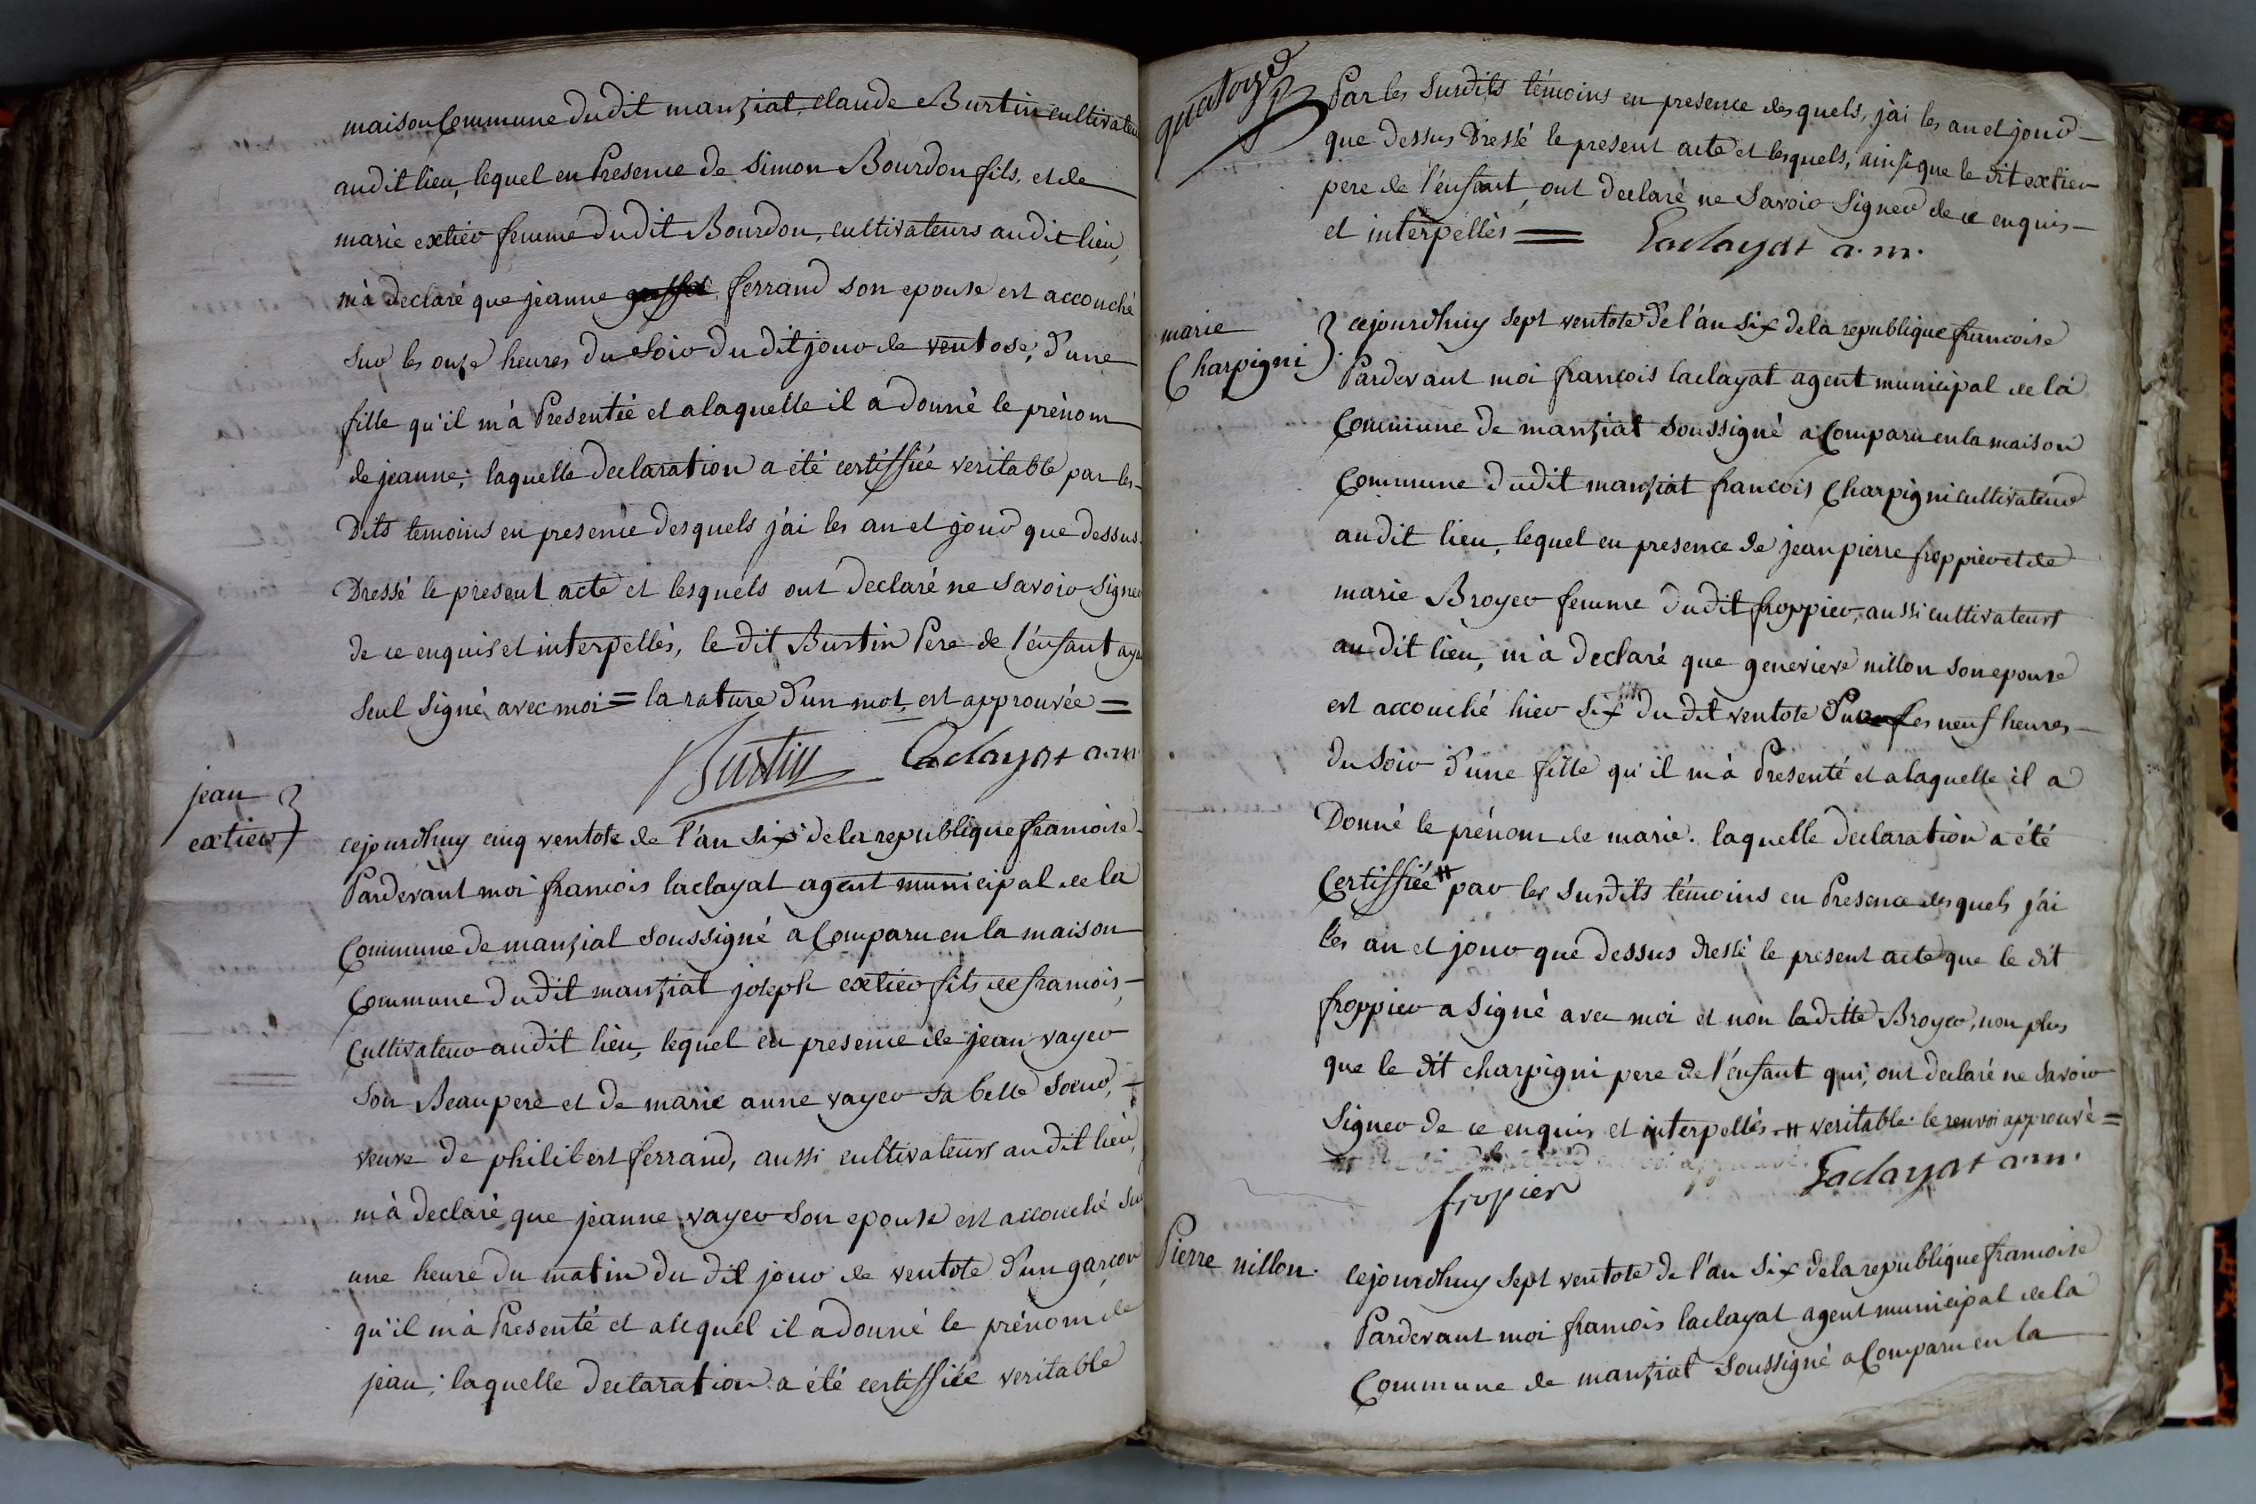 maison Commune dudit manziat, claude Burtin cultivateur
audit lieu, lequel en Presence de simon Bourdon fils, et de
marie extier femme dudit Bourdon, cultivateurs audit lieu,
m'à declaré que jeanne ferrand son epouse est accouché
sur les onze heures du soir du dit jour de ventose, d'une
fille qu'il m'à Presentée et a laquelle il a donné le prénom
de jeanne; laquelle declaration a été certiffiée veritable par les
Dits temoins en presence desquels j'ai les an et jour que dessus
Dressé le present acte et lesquels ont declaré ne savoir signer
de ce enquis et interpellés, le dit Burtin Pere de l'énfant ayant
seul signé avec moi = la rature d'un mot est approuvée =
Burtin Laclayat a.m.
jean
extier
cejourdhuy cinq ventose de l'an six de la republique francoise
Pardevant moi francois laclayat agent municipal de la
Commune de manziat soussigné a Comparu en la maison
Commune dudit manziat joseph extier fils de francois,
Cultivateur audit lieu, lequel en presence de jean vayer
son Beaupere et de marie anne vayer sa belle soeur,
veuve de philibert ferrand, aussi cultivateurs audit lieu,
m'à declaré que jeanne vayer son epouse est accouché sur
une heure du matin du dit jour de ventose d'un garcon
qu'il m'à Presenté et auquel il a donné le prénom de
jean; laquelle declaration a été certiffiée veritable
quatorze
Par les susdits témoins en presence desquels, j'ai les an et jour
que dessus Dressé le present acte et lesquels, ainsi que le dit extier
pere de l'énfant, ont declaré ne savoir signer de ce enquis
et interpellés = Laclayat a.m.
marie
Charpigni
cejourdhuy sept ventose de l'an six de la republique francoise
Pardevant moi françois laclayat agent municipal de la
Commune de manziat soussigné a Comparu en la maison
Commune dudit manziat francois Charpigni cultivateur
audit lieu, lequel en presence de jean pierre froppier et de
marie Broyer femme dudit froppier, aussi cultivateurs
au dit lieu, m'à declaré que genevieve nillon son epouse
est accouché hier six du dit ventose sur les neuf heures
du soir d'une fille qu'il m'à Presenté et a laquelle il a
Donné le prénom de marie. laquelle declaration a été
Certiffiée # par les susdits témoins en Presence desquels j'ai
les an et jour que dessus dressé le present acte que le dit
froppier a signé avec moi et non la ditte Broyer, non plus
que le dit charpigni pere de l'énfant qui, ont declaré ne savoir
signer de ce enquis et interpellés # veritable. le renvoi approuvé =
fropier Laclayat a.m.
Pierre nillon.
cejourdhuy sept ventose de l'an six de la republique francoise
Pardevant moi francois laclayat agent municipal de la
Commune de manziat soussigné a Comparu en la